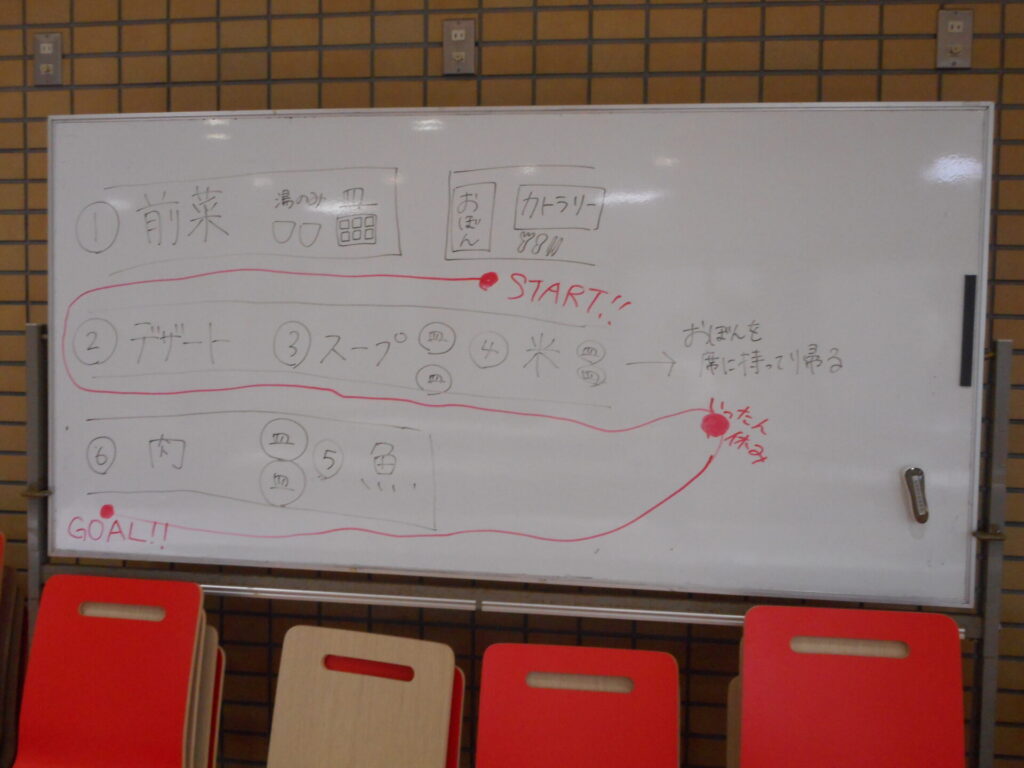 ① 前菜 湯のみ 皿
おぼん カトラリー
START!!
② デザート ③ スープ 皿 皿 ④ 米 皿 皿 → おぼんを
席に持って帰る
いったん
休み
⑥ 肉 皿 皿 ⑤ 魚
GOAL!!